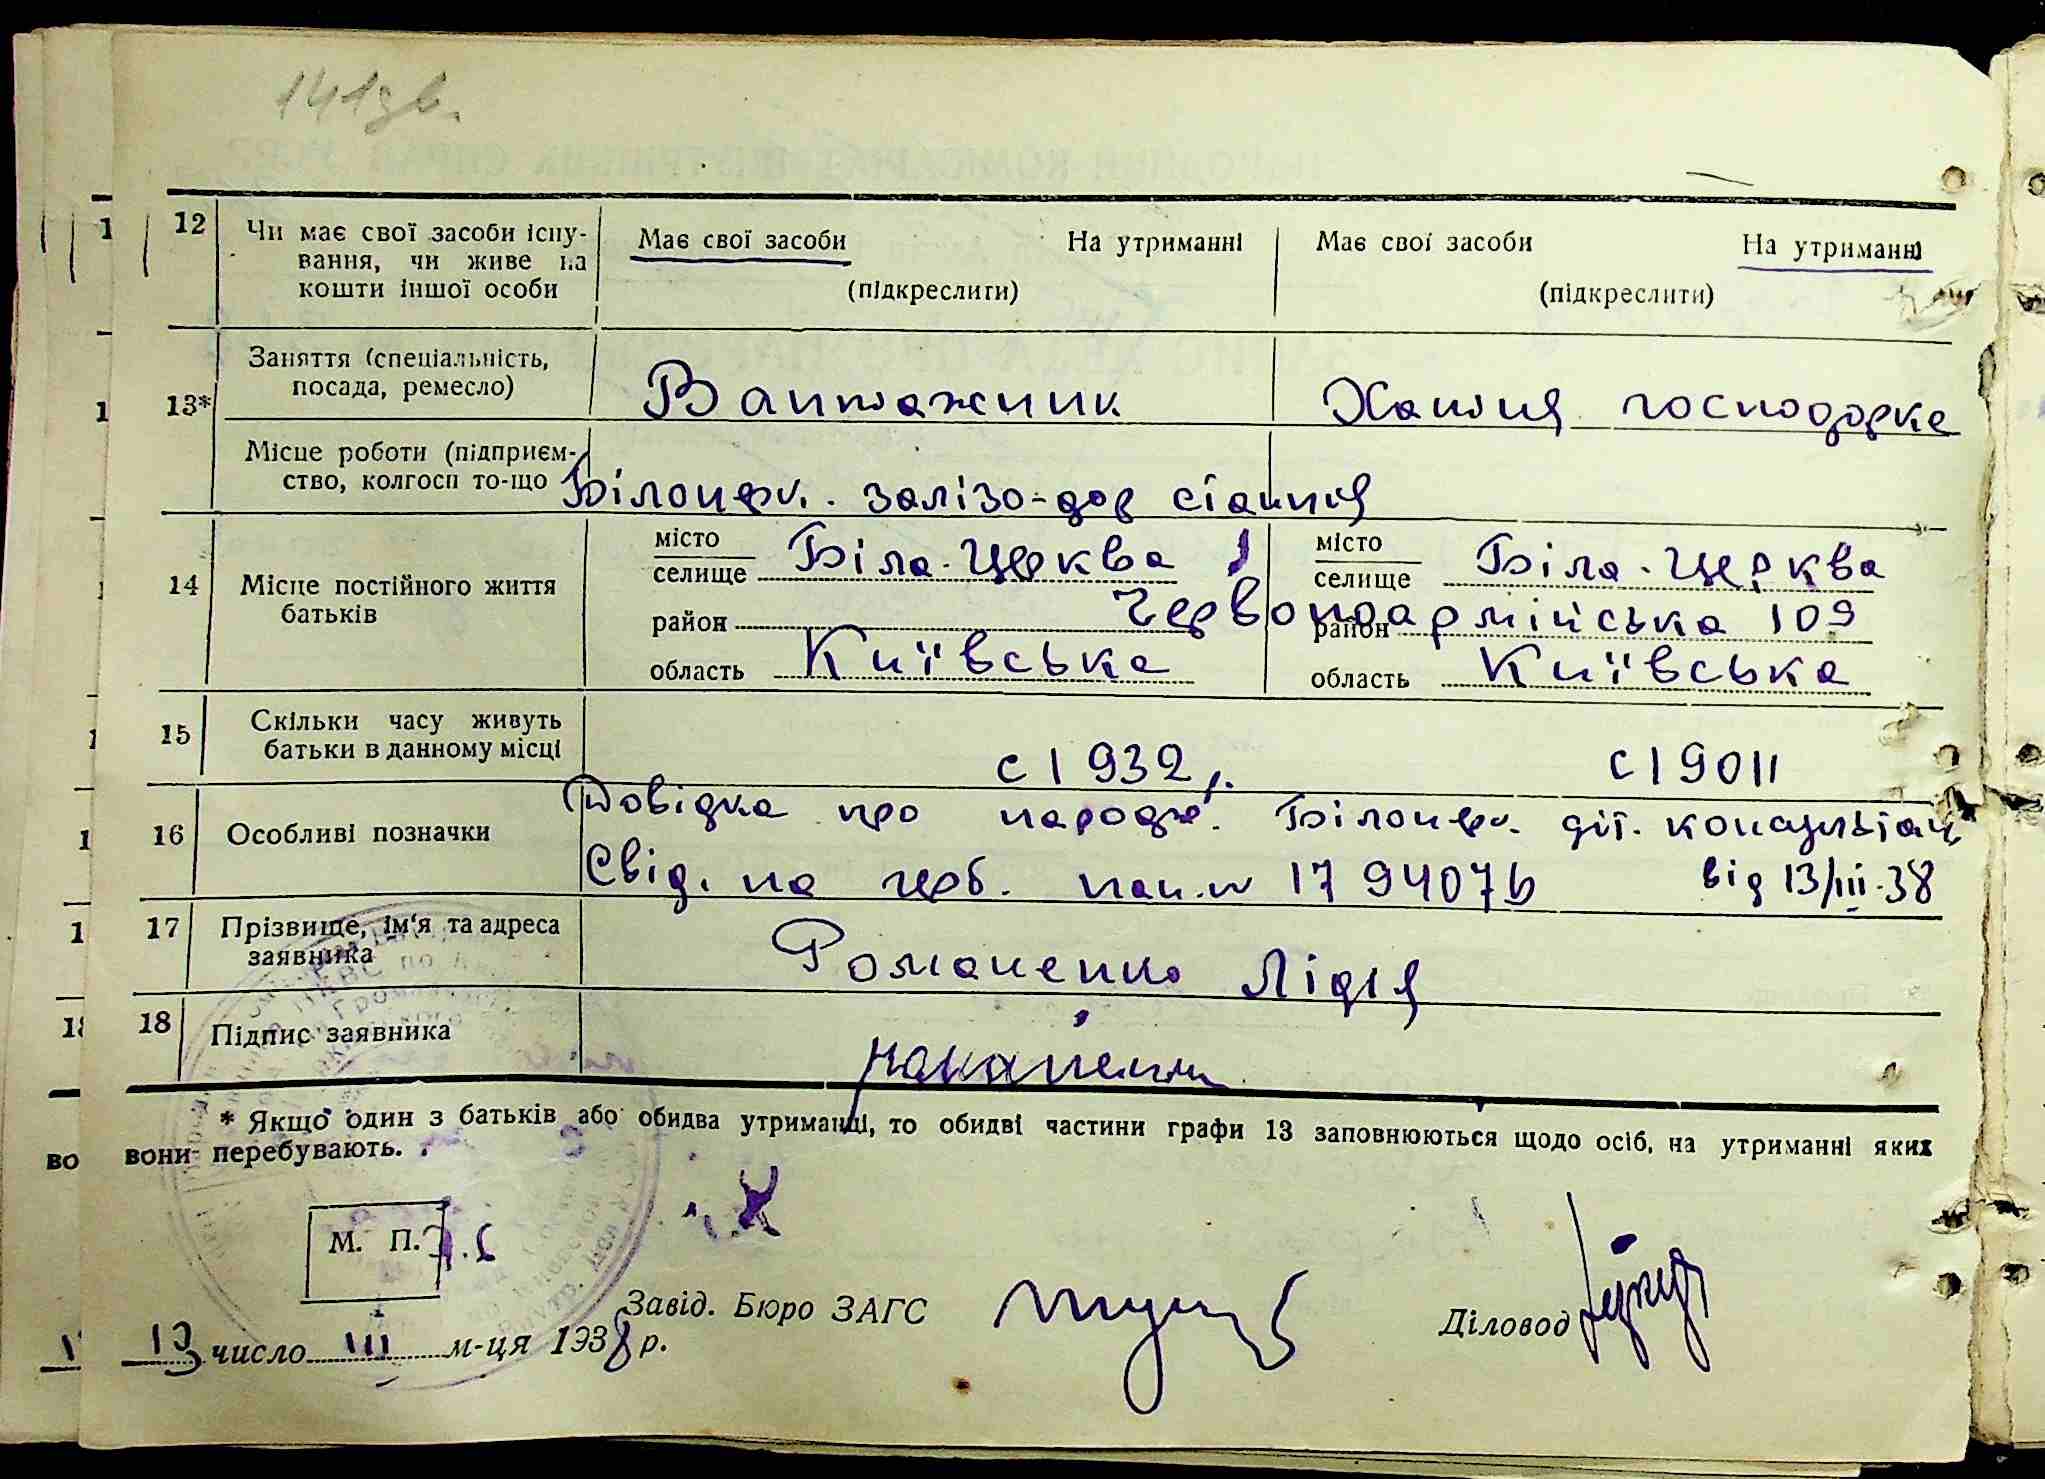 141зв.
12 Чи має свої засоби існу- Має свої засоби На утриманні Має свої засоби На утриманні
вання, чи живе на
кошти іншої особи (підкреслити) (підкреслити)
Заняття (спеціальність,
посада, ремесло) Вантажник Хатня господарка
13*
Місце роботи (підприєм-
ство, колгосп то-що Білоцерк. залізо-дор станция
місто місто
селище Біла-Церква селище Біла-Церква
14 Місце постійного життя
батьків район Червоноармійська 109 район
область Київська область Київська
15 Скільки часу живуть
батьки в данному місці с 1932 р. с 1901
Довідка про народж. Білоцерк. діт. консультац
16 Особливі позначки
Свід. на герб. пап. № 1794076 від 13/III-38
17 Прізвище, ім'я та адреса
заявника Романенко Лідія
18 Підпис заявника
* Якщо один з батьків або обидва утриманці, то обидві частини графи 13 заповнюються щодо осіб, на утриманні яких
вони перебувають.
М. П.
Завід. Бюро ЗАГС Діловод
13 число III м-ця 1938 р.